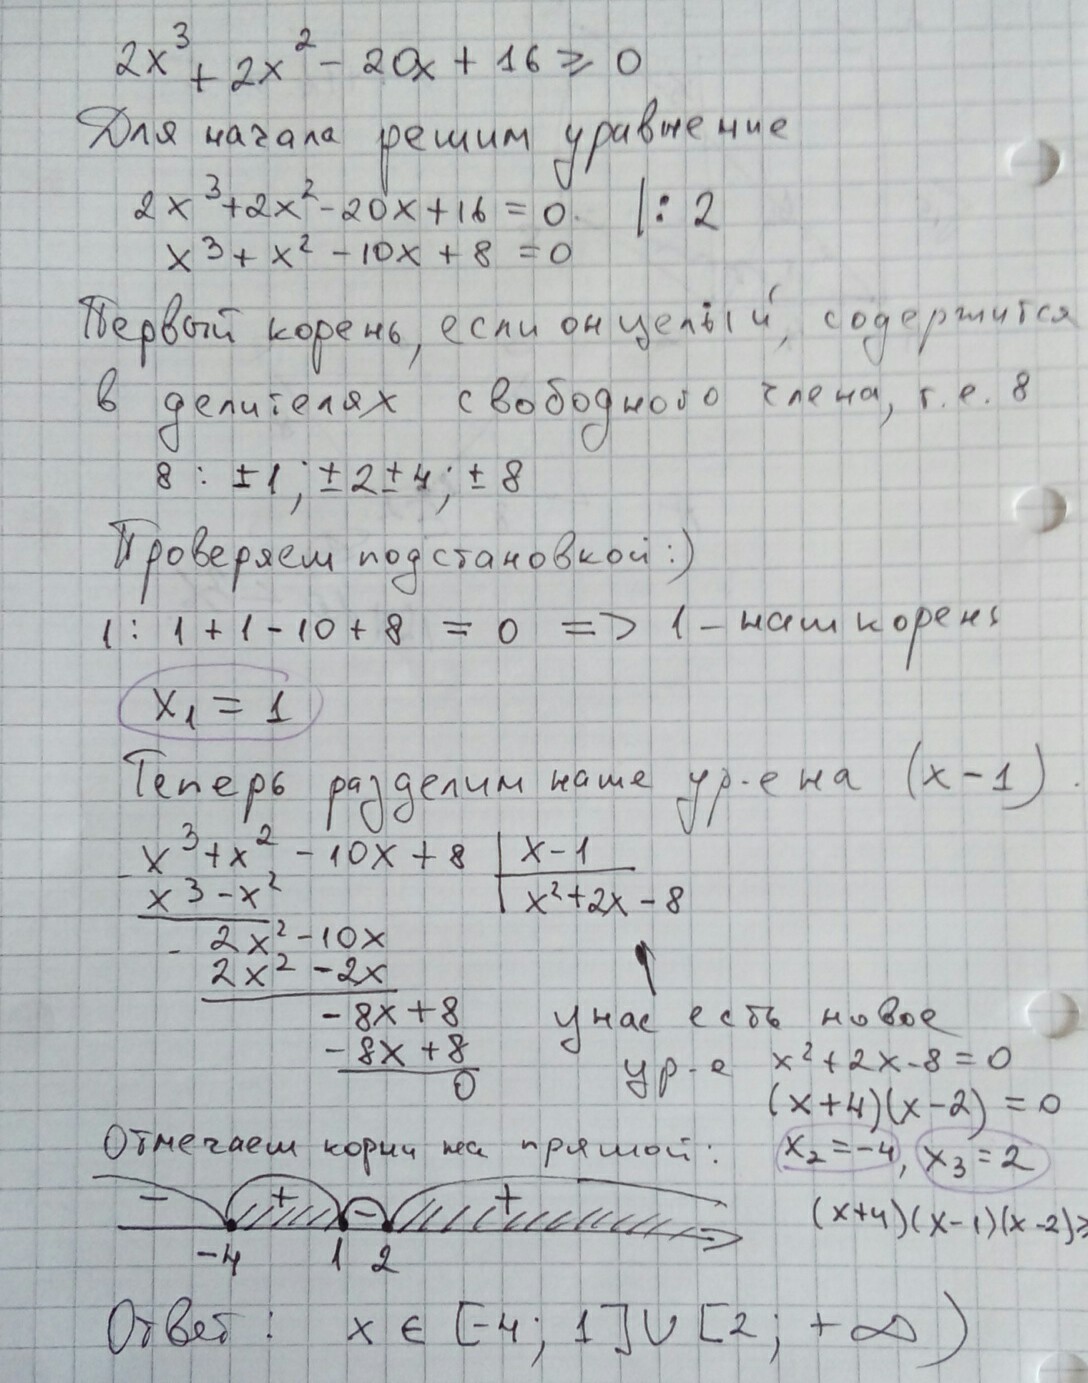 2x³ + 2x² - 20x + 16 ≥ 0
Для начала решим уравнение
2x³+2x²-20x+16 = 0. |: 2
x³ + x² - 10x + 8 = 0
Первый корень, если он целый, содержится
в делителях свободного члена, т.е. 8
8 : ±1; ±2 ±4; ±8
Проверяем подстановкой :)
1: 1 + 1 - 10 + 8 = 0 => 1 - наш корень
x₁ = 1
Теперь разделим наше ур-е на (x-1)
- x³+x² - 10x + 8 | x-1
x³ - x² | x²+2x-8
- 2x² - 10x
2x² - 2x
-8x+8
-8x+8
0
У нас есть новое
ур-е x²+2x-8=0
(x+4)(x-2) = 0
x₂=-4, x₃=2
Отмечаем корни на прямой:
- + - +
-4 1 2
(x+4)(x-1)(x-2)≥
Ответ: x ∈ [-4; 1] ∪ [2; +∞)